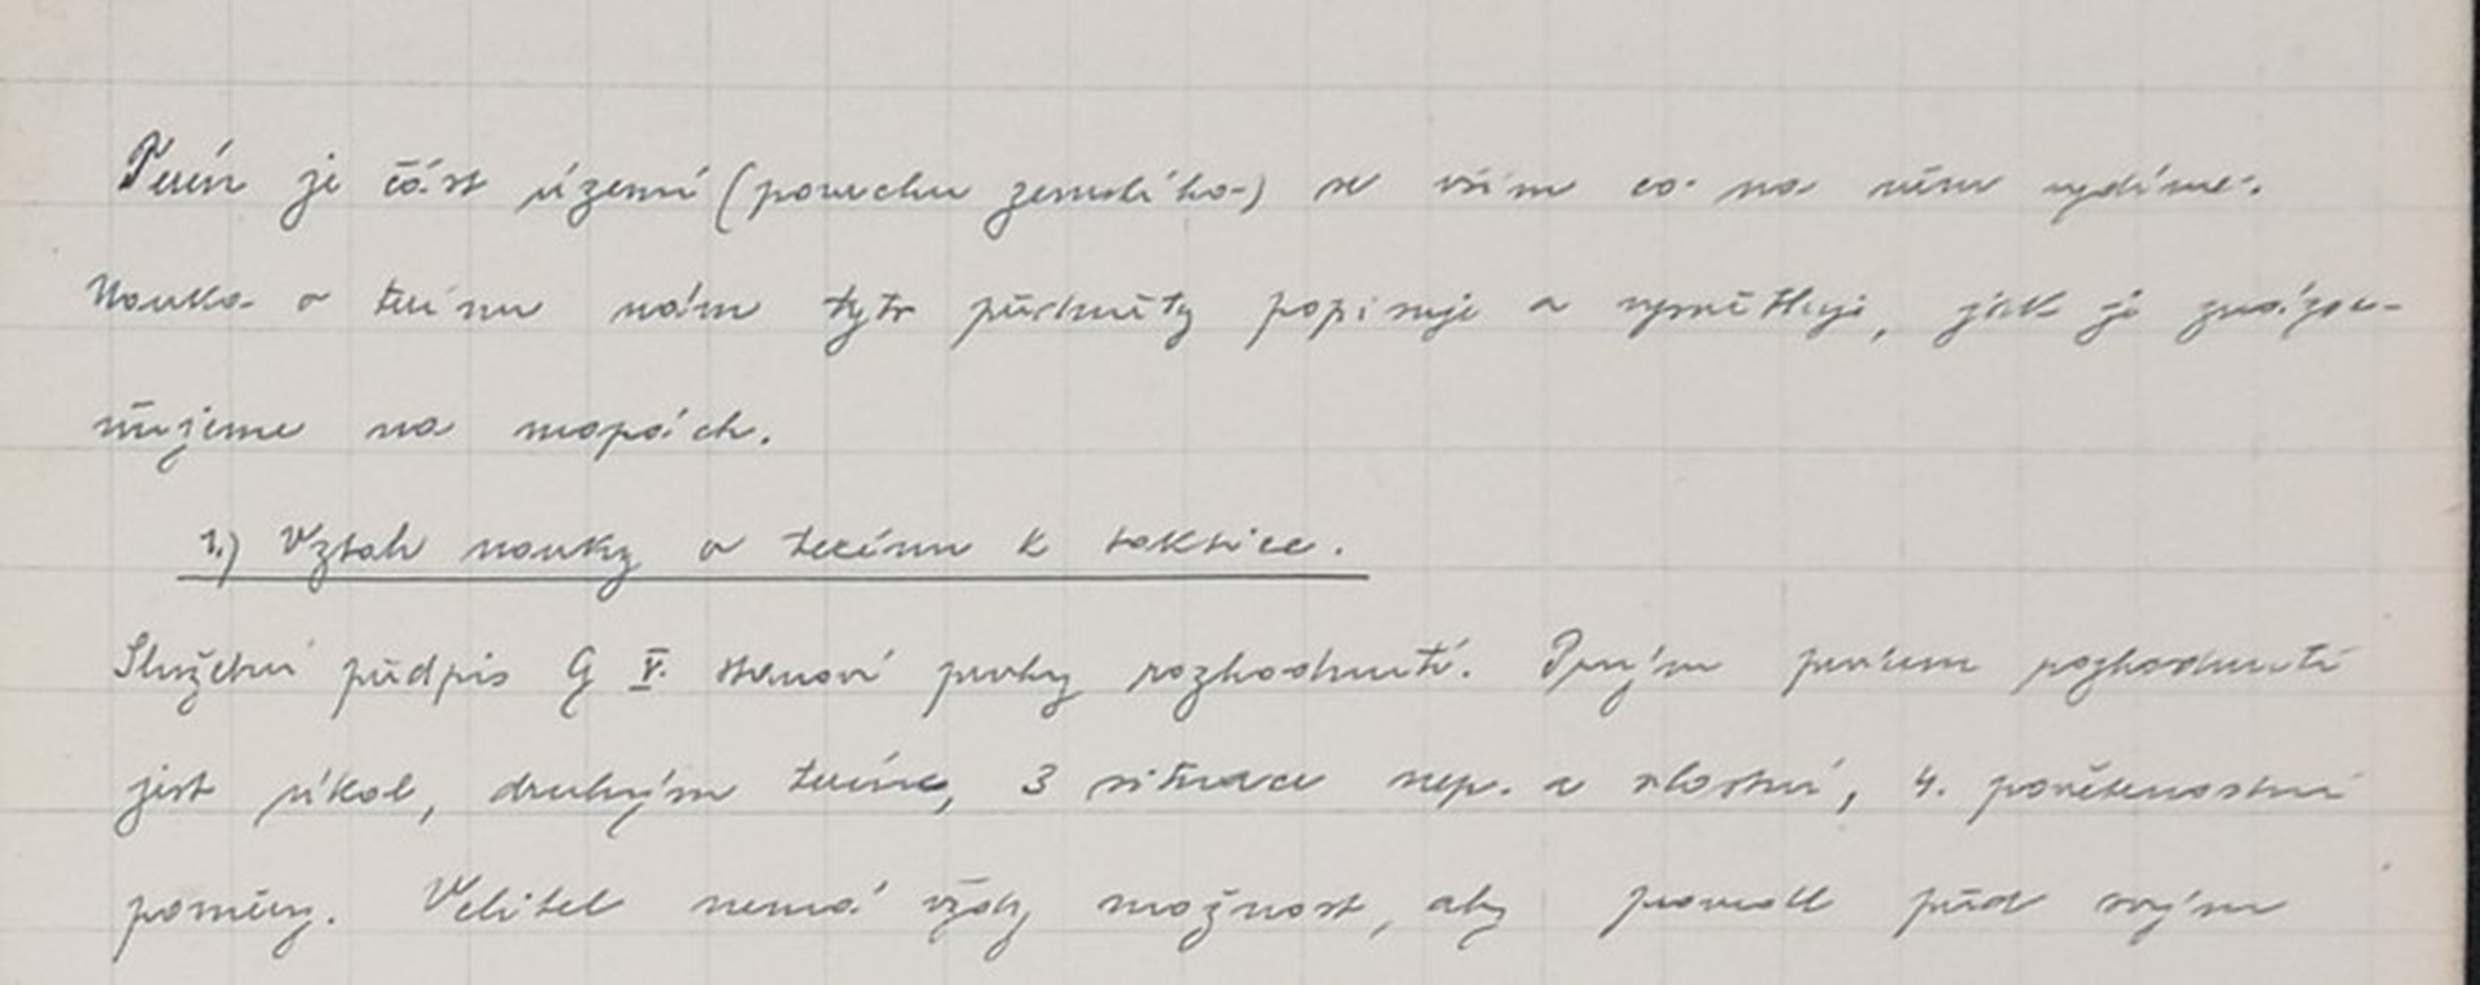 Terén je část území (povrchu zemského) se vším co na něm vydíme.
Nauka o terénu nám tyto předměty popisuje a vysvětluje, jak je znázor-
ňujeme na mapách.
1.) Vztah nauky o terénu k taktice.
Služební předpis G V. stanoví prvky rozhodnutí. Prvým prvkem rozhodnutí
jest úkol, druhým terén, 3 situace nep. a vlastní, 4. povětrnostní
poměry. Velitel nemá vždy možnost, aby provedl před svým